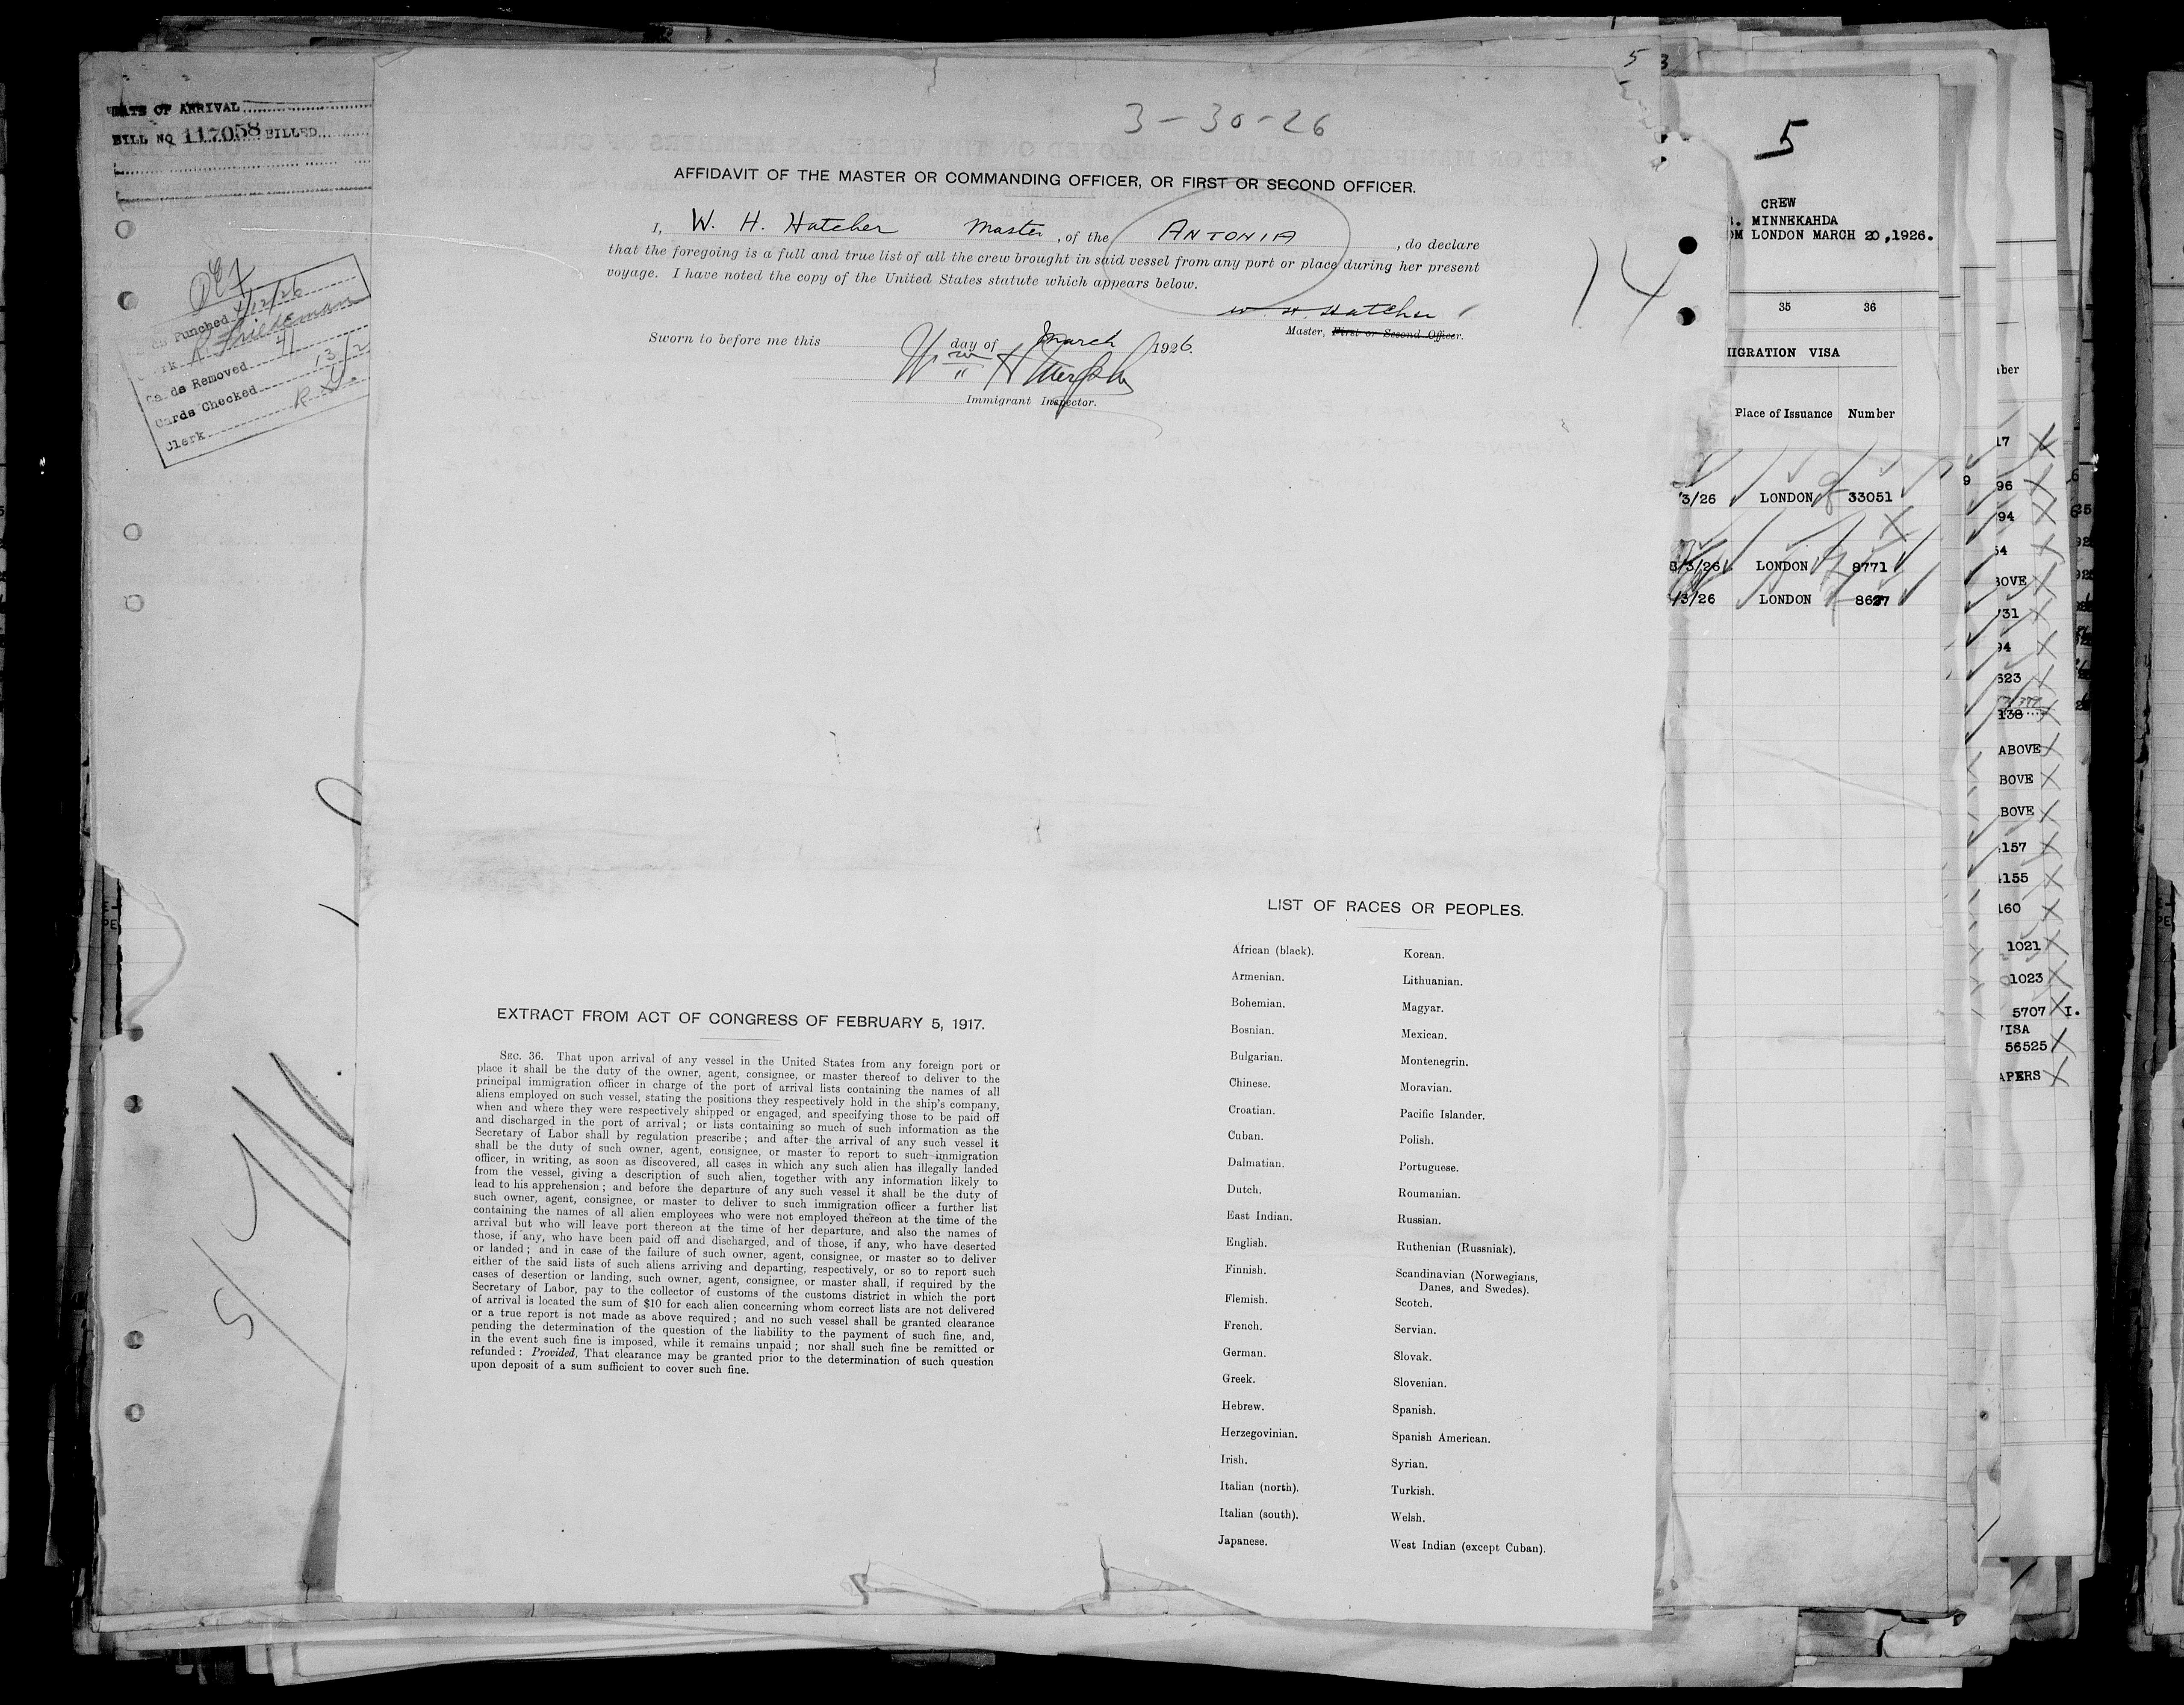 DATE OF ARRIVAL
BILL NO 117058 BILLED
Punched 4/12/26
Cards Removed
Cards Checked 13/2
Clerk
5
3-30-26
AFFIDAVIT OF THE MASTER OR COMMANDING OFFICER, OR FIRST OR SECOND OFFICER.
I, W. H. Hatcher Master, of the ANTONIA, do declare
that the foregoing is a full and true list of all the crew brought in said vessel from any port or place during her present
voyage. I have noted the copy of the United States statute which appears below.
W. H. Hatcher
Master, First or Second Officer.
Sworn to before me this day of March 1926.
Wm H Murphy
Immigrant Inspector.
14
EXTRACT FROM ACT OF CONGRESS OF FEBRUARY 5, 1917.
SEC. 36. That upon arrival of any vessel in the United States from any foreign port or
place it shall be the duty of the owner, agent, consignee, or master thereof to deliver to the
principal immigration officer in charge of the port of arrival lists containing the names of all
aliens employed on such vessel, stating the positions they respectively hold in the ship's company,
when and where they were respectively shipped or engaged, and specifying those to be paid off
and discharged in the port of arrival; or lists containing so much of such information as the
Secretary of Labor shall by regulation prescribe; and after the arrival of any such vessel it
shall be the duty of such owner, agent, consignee, or master to report to such immigration
officer, in writing, as soon as discovered, all cases in which any such alien has illegally landed
from the vessel, giving a description of such alien, together with any information likely to
lead to his apprehension; and before the departure of any such vessel it shall be the duty of
such owner, agent, consignee, or master to deliver to such immigration officer a further list
containing the names of all alien employees who were not employed thereon at the time of the
arrival but who will leave port thereon at the time of her departure, and also the names of
those, if any, who have been paid off and discharged, and of those, if any, who have deserted
or landed; and in case of the failure of such owner, agent, consignee, or master so to deliver
either of the said lists of such aliens arriving and departing, respectively, or so to report such
cases of desertion or landing, such owner, agent, consignee, or master shall, if required by the
Secretary of Labor, pay to the collector of customs of the customs district in which the port
of arrival is located the sum of $10 for each alien concerning whom correct lists are not delivered
or a true report is not made as above required; and no such vessel shall be granted clearance
pending the determination of the question of the liability to the payment of such fine, and,
in the event such fine is imposed, while it remains unpaid; nor shall such fine be remitted or
refunded: Provided, That clearance may be granted prior to the determination of such question
upon deposit of a sum sufficient to cover such fine.
LIST OF RACES OR PEOPLES.
African (black). Korean.
Armenian. Lithuanian.
Bohemian. Magyar.
Bosnian. Mexican.
Bulgarian. Montenegrin.
Chinese. Moravian.
Croatian. Pacific Islander.
Cuban. Polish.
Dalmatian. Portuguese.
Dutch. Roumanian.
East Indian. Russian.
English. Ruthenian (Russniak).
Finnish. Scandinavian (Norwegians,
Danes, and Swedes).
Flemish. Scotch.
French. Servian.
German. Slovak.
Greek. Slovenian.
Hebrew. Spanish.
Herzegovinian. Spanish American.
Irish. Syrian.
Italian (north). Turkish.
Italian (south). Welsh.
Japanese. West Indian (except Cuban).
5
CREW
MINNEKAHDA
LONDON MARCH 20,1926.
35 36
IGRATION VISA
Place of Issuance Number
3/26 LONDON 33051
3/3/26 LONDON 8771
/3/26 LONDON 8627
ber
17
96
94
54
BOVE
731
94
623
138
ABOVE
BOVE
BOVE
157
155
160
1021
1023
5707 I.
VISA
56525
APERS